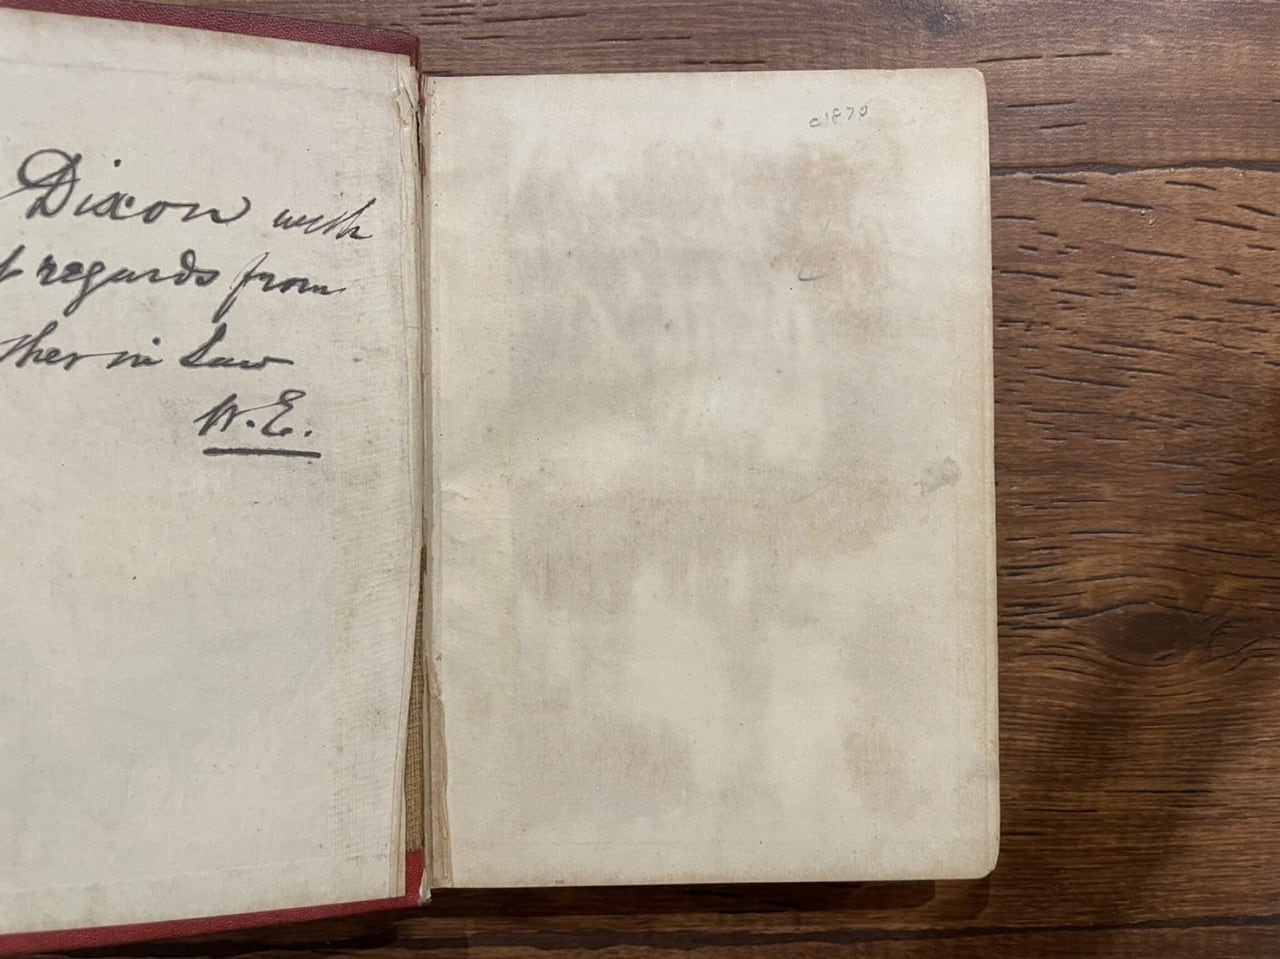 Dixon with
regards from
ther in Law
W.E.
c1870